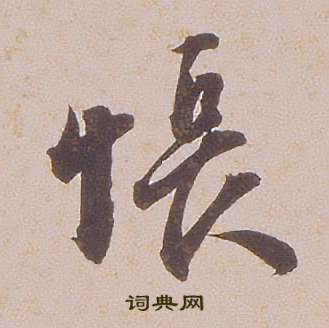 悵
词典网